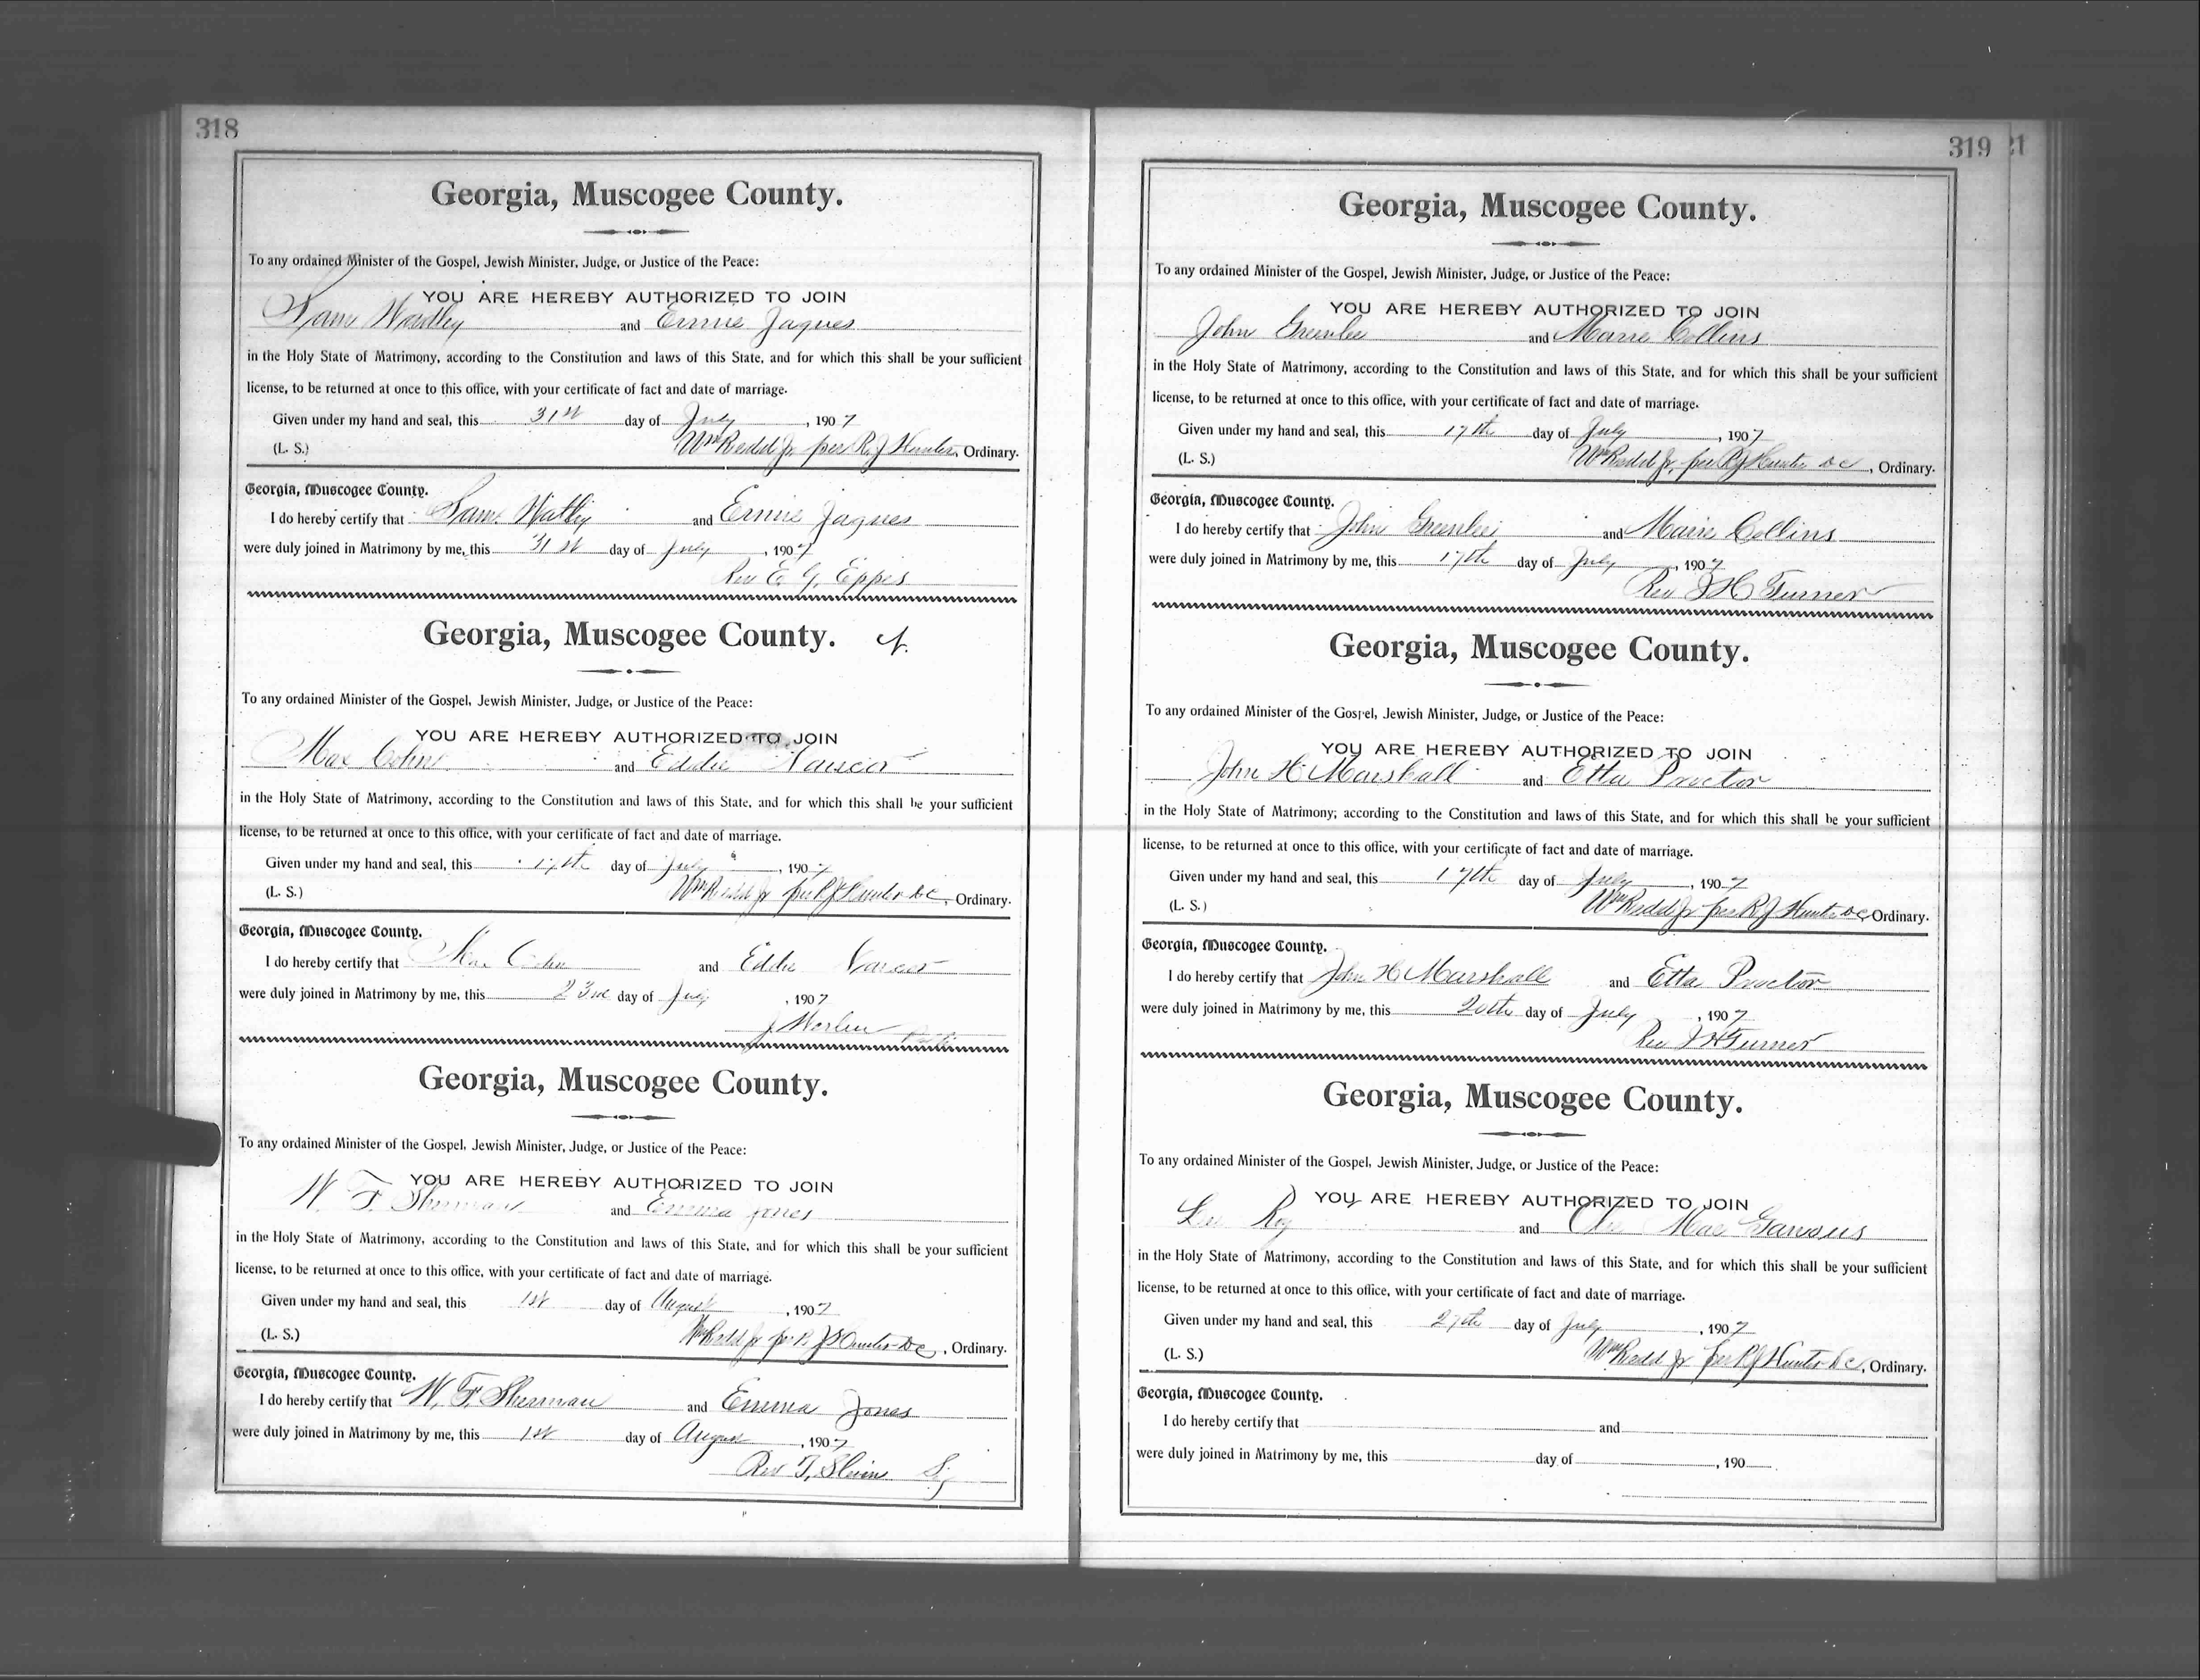 318
Georgia, Muscogee County.
To any ordained Minister of the Gospel, Jewish Minister, Judge, or Justice of the Peace:
YOU ARE HEREBY AUTHORIZED TO JOIN
Sam and Ernie Jaques
in the Holy State of Matrimony, according to the Constitution and laws of this State, and for which this shall be your sufficient
license, to be returned at once to this office, with your certificate of fact and date of marriage.
Given under my hand and seal, this 31st day of July, 1907
(L. S.) Wm Redd Jr per R J Hunter, Ordinary.
Georgia, Muscogee County.
I do hereby certify that Sam and Ernie Jaques
were duly joined in Matrimony by me, this 31st day of July, 1907
Rev E. G. Eppes
Georgia, Muscogee County.
To any ordained Minister of the Gospel, Jewish Minister, Judge, or Justice of the Peace:
YOU ARE HEREBY AUTHORIZED TO JOIN
Max Cohn and Eddie
in the Holy State of Matrimony, according to the Constitution and laws of this State, and for which this shall be your sufficient
license, to be returned at once to this office, with your certificate of fact and date of marriage.
Given under my hand and seal, this 17th day of July, 1907
(L. S.) Wm Redd Jr per R J Hunter D C, Ordinary.
Georgia, Muscogee County.
I do hereby certify that Max Cohn and Eddie
were duly joined in Matrimony by me, this 23rd day of July, 1907
J
Georgia, Muscogee County.
To any ordained Minister of the Gospel, Jewish Minister, Judge, or Justice of the Peace:
YOU ARE HEREBY AUTHORIZED TO JOIN
W. F. Sherman and Emma Jones
in the Holy State of Matrimony, according to the Constitution and laws of this State, and for which this shall be your sufficient
license, to be returned at once to this office, with your certificate of fact and date of marriage.
Given under my hand and seal, this 1st day of August, 1907
(L. S.) Wm Redd Jr per R J Hunter D C, Ordinary.
Georgia, Muscogee County.
I do hereby certify that W. F. Sherman and Emma Jones
were duly joined in Matrimony by me, this 1st day of August, 1907
Rev T.
319 21
Georgia, Muscogee County.
To any ordained Minister of the Gospel, Jewish Minister, Judge, or Justice of the Peace:
YOU ARE HEREBY AUTHORIZED TO JOIN
John Greenlee and Marie Collins
in the Holy State of Matrimony, according to the Constitution and laws of this State, and for which this shall be your sufficient
license, to be returned at once to this office, with your certificate of fact and date of marriage.
Given under my hand and seal, this 17th day of July, 1907
(L. S.) Wm Redd Jr, per R J Hunter D C, Ordinary.
Georgia, Muscogee County.
I do hereby certify that John Greenlee and Marie Collins
were duly joined in Matrimony by me, this 17th day of July, 1907
Rev J H Turner
Georgia, Muscogee County.
To any ordained Minister of the Gospel, Jewish Minister, Judge, or Justice of the Peace:
YOU ARE HEREBY AUTHORIZED TO JOIN
John H Marshall and Etta Proctor
in the Holy State of Matrimony; according to the Constitution and laws of this State, and for which this shall be your sufficient
license, to be returned at once to this office, with your certificate of fact and date of marriage.
Given under my hand and seal, this 17th day of July, 1907
(L. S.) Wm Redd Jr per R J Hunter D C, Ordinary.
Georgia, Muscogee County.
I do hereby certify that John H Marshall and Etta Proctor
were duly joined in Matrimony by me, this 20th day of July, 1907
Rev J H Turner
Georgia, Muscogee County.
To any ordained Minister of the Gospel, Jewish Minister, Judge, or Justice of the Peace:
YOU ARE HEREBY AUTHORIZED TO JOIN
Lee Roy and Mae
in the Holy State of Matrimony, according to the Constitution and laws of this State, and for which this shall be your sufficient
license, to be returned at once to this office, with your certificate of fact and date of marriage.
Given under my hand and seal, this 27th day of July, 1907
(L. S.) Wm Redd Jr per R J Hunter D C, Ordinary.
Georgia, Muscogee County.
I do hereby certify that and
were duly joined in Matrimony by me, this day of , 190